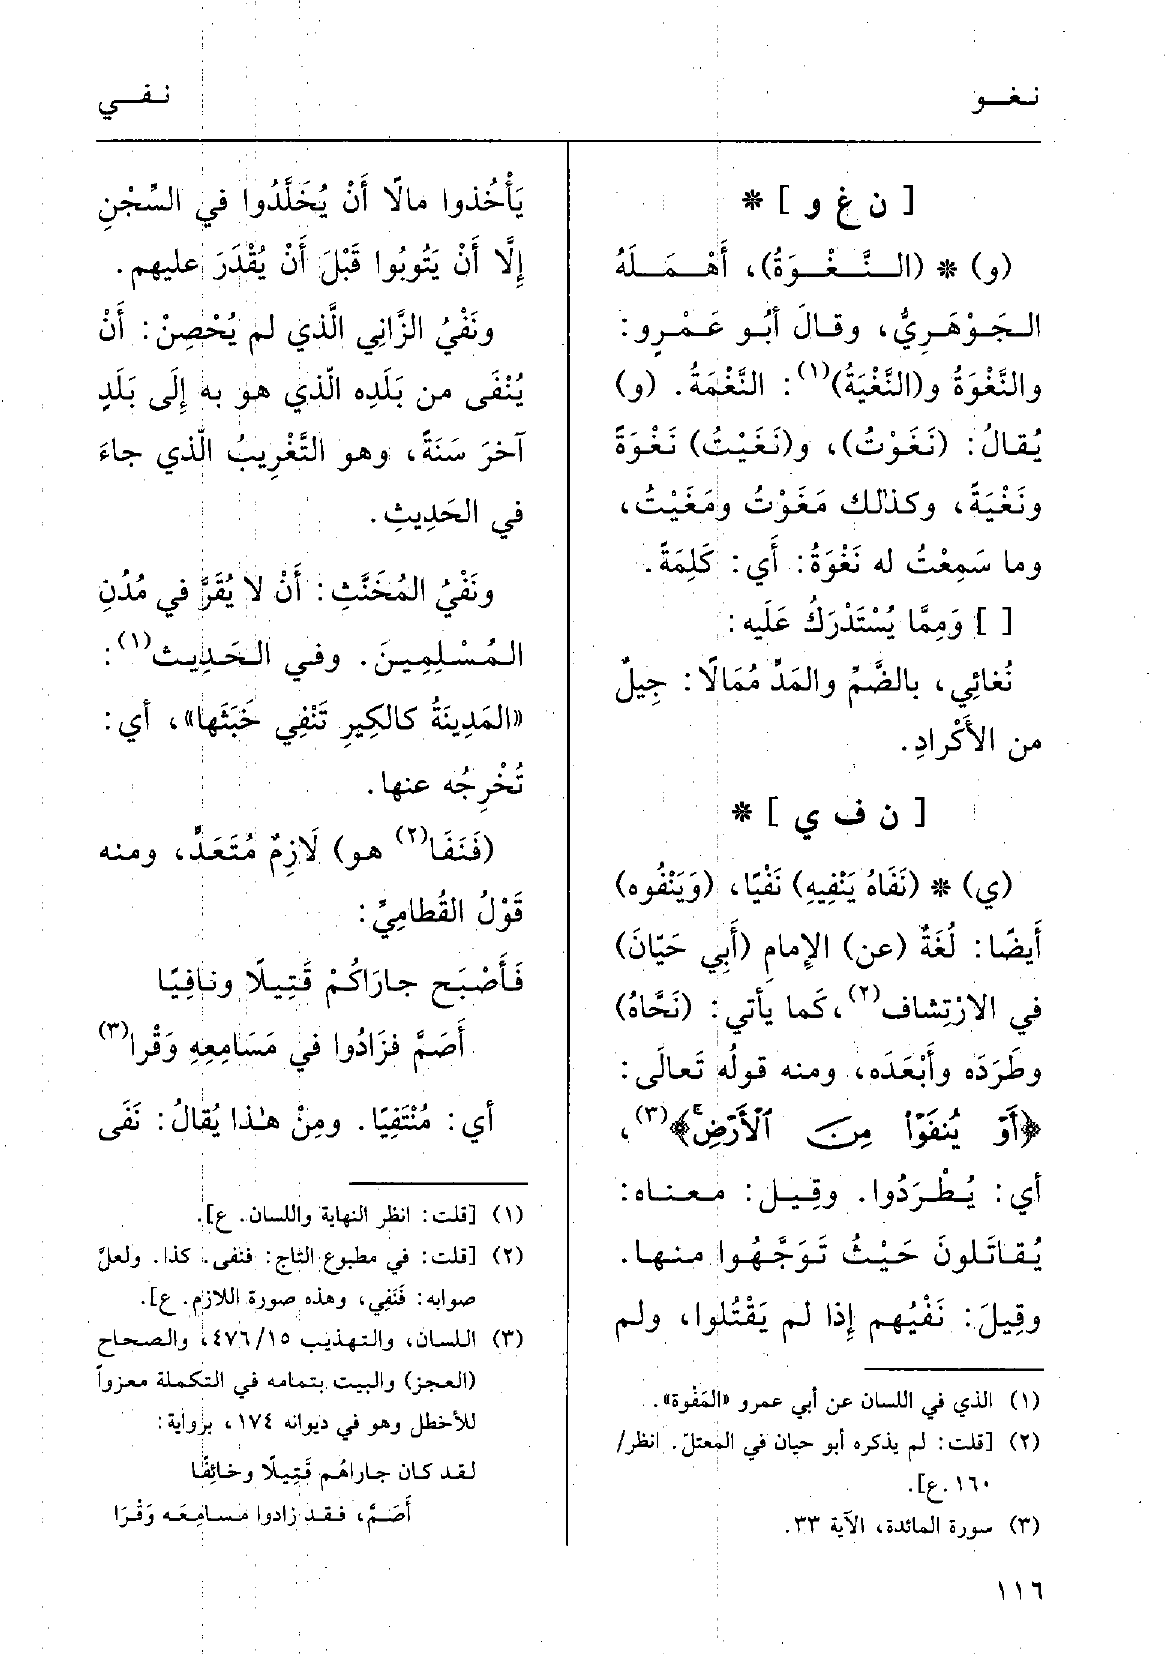 نغو
نفي
[ ن غ و ] *
(و) * (النَّغْوَةُ)، أَهْمَلَهُ
الجَوْهَرِيُّ، وقالَ أبُو عَمْرٍو:
والنَّغْوَةُ و(النَّغْيَةُ)(١): النَّغْمَةُ. (و)
يُقالُ: (نَغَوْتُ)، و(نَغَيْتُ) نَغْوَةً
ونَغْيَةً، وكذلك مَغَوْتُ ومَغَيْتُ،
وما سَمِعْتُ له نَغْوَةً: أَي: كَلِمَةً.
[ ] وَمِمَّا يُسْتَدْرَكُ عَلَيه:
نُغائِي، بالضَّمِّ والمَدِّ مُمَالًا: جِيلٌ
من الأَكْرادِ.
[ ن ف ي ] *
(ي) * (نَفَاهُ يَنْفِيهِ) نَفْيًا، (وَيَنْفُوه)
أَيضًا: لُغَةٌ (عن) الإِمامِ (أَبِي حَيّانَ)
في الارْتِشاف(٢)، كَما يأتي: (نَحَّاهُ)
وطَرَدَه وأَبْعَدَه، ومنه قولُه تَعالَى:
﴿أَوْ يُنفَوْا مِنَ الْأَرْضِ﴾(٣)،
أي: يُطْرَدُوا. وقِيل: معناه:
يُقاتَلونَ حَيْثُ تَوَجَّهُوا منها.
وقِيلَ: نَفْيُهم إذا لم يَقْتُلوا، ولم
(١) الذي في اللسان عن أبي عمرو «المَغْوة».
(٢) [قلت: لم يذكره أبو حيان في المعتلّ. انظر/
١٦٠ .ع].
(٣) سورة المائدة، الآية ٣٣.
يَأْخُذوا مالًا أَنْ يُخَلَّدُوا في السِّجْنِ
إلَّا أَنْ يَتُوبُوا قَبْلَ أَنْ يُقْدَرَ عليهم.
ونَفْيُ الزَّانِي الَّذي لم يُحْصِنْ: أَنْ
يُنْفَى من بَلَدِه الّذي هو به إلَى بَلَدٍ
آخرَ سَنَةً، وهو التَّغْرِيبُ الّذي جاءَ
في الحَدِيثِ.
ونَفْيُ المُخَنَّثِ: أَنْ لا يُقَرَّ في مُدُنِ
المُسْلِمِينَ. وفي الحَدِيث(١):
«المَدِينَةُ كالكِيرِ تَنْفِي خَبَثَها»، أي:
تُخْرِجُه عنها.
(فَنَفَا(٢) هو) لَازِمٌ مُتَعَدٍّ، ومنه
قَوْلُ القُطامِيِّ:
فَأَصْبَح جارَاكُمْ قَتِيلًا ونافِيًا
أَصَمَّ فزَادُوا في مَسَامِعِهِ وَقْرا(٣)
أي: مُنْتَفِيًا. ومِنْ هٰذا يُقالُ: نَفَى
(١) [قلت: انظر النهاية واللسان. ع].
(٢) [قلت: في مطبوع التاج: فنفى. كذا. ولعلّ
صوابه: فَنَفِي، وهذه صورة اللازم. ع].
(٣) اللسان، والتهذيب ٤٧٦/١٥، والصحاح
(العجز) والبيت بتمامه في التكملة معزواً
للأخطل وهو في ديوانه ١٧٤، برواية:
لقد كان جاراهُم قَتِيلًا وخائِفًا
أَصَمَّ، فقد زادوا مسامِعَه وَقْرَا
١١٦